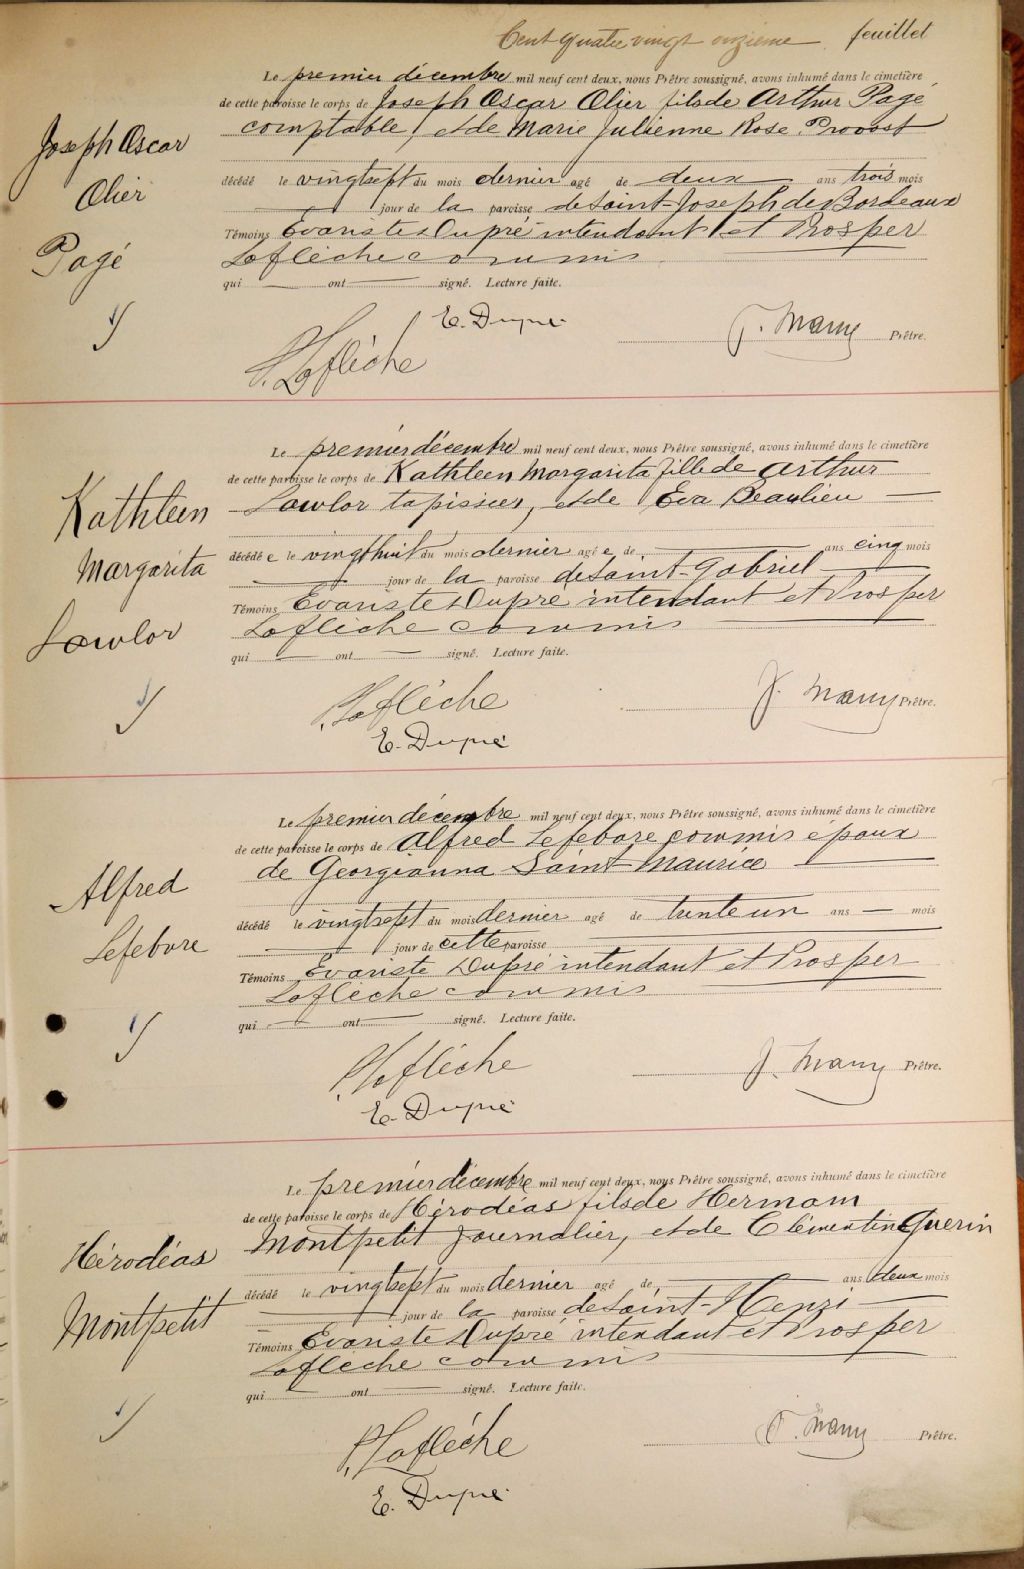 Cent quatre vingt onzieme feuillet
Joseph Oscar
Olier
Pagé
Le premier décembre mil neuf cent deux, nous Prêtre soussigné, avons inhumé dans le cimetière
de cette paroisse le corps de Joseph Oscar Olier fils de Arthur Pagé
comptable, et de Marie Julienne Rose Provost
décédé le vingt sept du mois dernier agé de deux ans trois mois
jour de la paroisse de Saint-Joseph de Bordeaux
Témoins Evariste Dupré intendant et Prosper
Laflèche commis
qui ont signé. Lecture faite.
E. Dupré
J. Mamy Prêtre.
P. Laflèche
Kathleen
Margarita
Lawlor
Le premier décembre mil neuf cent deux, nous Prêtre soussigné, avons inhumé dans le cimetière
de cette paroisse le corps de Kathleen Margarita fille de Arthur
Lawlor tapissier, et de Eva Beaulieu
décédée le vingt huit du mois dernier agée de ans cinq mois
jour de la paroisse de Saint-Gabriel
Témoins Evariste Dupré intendant et Prosper
Laflèche commis
qui ont signé. Lecture faite.
P. Laflèche
J. Mamy Prêtre.
E. Dupré
Alfred
Lefebvre
Le premier décembre mil neuf cent deux, nous Prêtre soussigné, avons inhumé dans le cimetière
de cette paroisse le corps de Alfred Lefebvre commis époux
de Georgianna Saint Maurice
décédé le vingt sept du mois dernier agé de trente un ans — mois
jour de cette paroisse
Témoins Evariste Dupré intendant et Prosper
Laflèche commis
qui ont signé. Lecture faite.
P. Laflèche
J. Mamy Prêtre.
E. Dupré
Hérodéas
Montpetit
Le premier décembre mil neuf cent deux, nous Prêtre soussigné, avons inhumé dans le cimetière
de cette paroisse le corps de Hérodéas fils de Hermam
Montpetit journalier, et de Clémentine Guerin
décédé le vingt sept du mois dernier agé de ans deux mois
jour de la paroisse de Saint-Henri
Témoins Evariste Dupré intendant et Prosper
Laflèche commis
qui ont signé. Lecture faite.
P. Laflèche
J. Mamy Prêtre.
E. Dupré